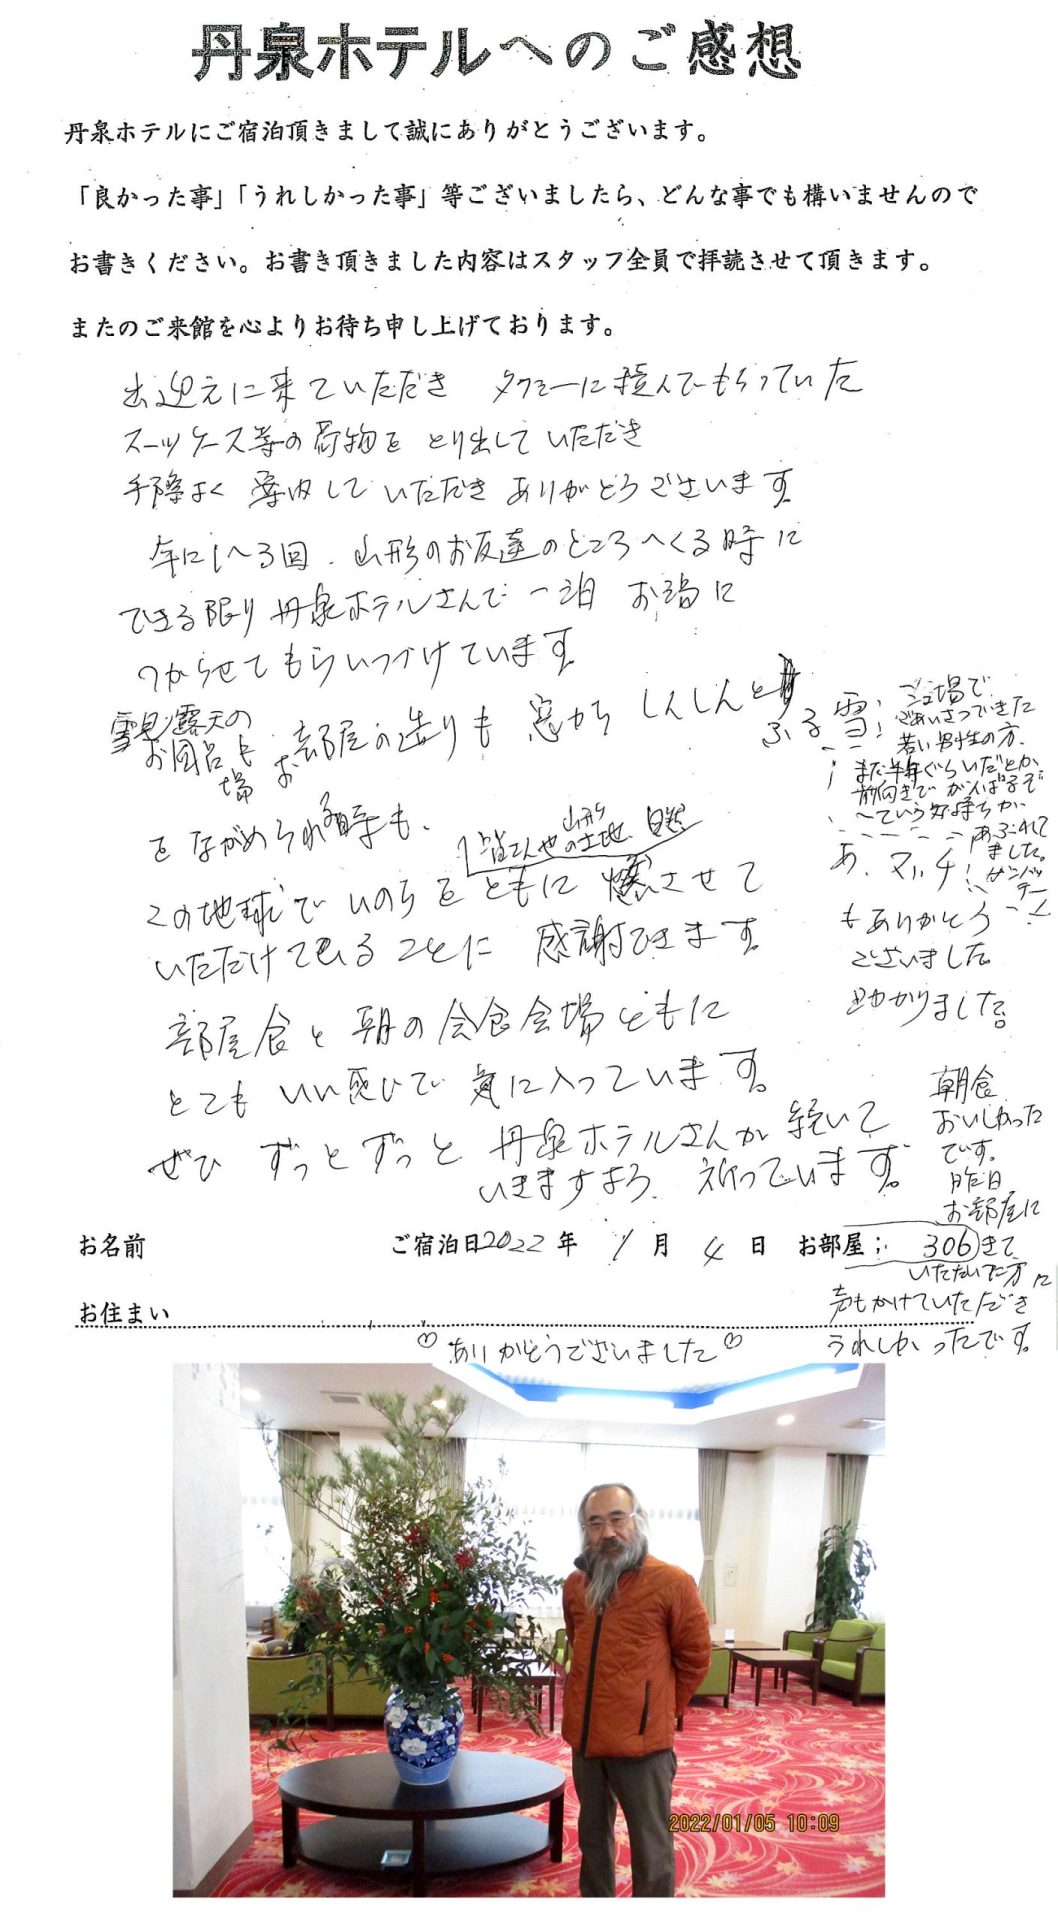 丹泉ホテルへのご感想
丹泉ホテルにご宿泊頂きまして誠にありがとうございます。
「良かった事」「うれしかった事」等ございましたら、どんな事でも構いませんので
お書きください。お書き頂きました内容はスタッフ全員で拝読させて頂きます。
またのご来館を心よりお待ち申し上げております。
出迎えに来ていただき タクシーに積んでもらっていた
スーツケース等の荷物を とり出していただき
手際よく 案内していただき ありがとうございます。
年に1〜3回、山形のお友達のところへくる時に
できる限り 丹泉ホテルさんで 一泊 お湯に
つからせてもらいつづけています。
雪見露天の
お風呂も
場 お部屋の造りも 窓から しんしんと
ふる雪!
をながめられる時も、
皆さんや山形の土地、自然
この地球で いのちを ともに させて
いただけていることに 感謝できます。
部屋食と朝の会食会場ともに
とてもいい感じで 気に入っています。
ぜひ ずっとずっと 丹泉ホテルさんが 続いて
いきますよう、祈っています。
会場で
ごあいさつできた
若い男性の方、
まだ半年ぐらいだとか、
前向きで がんばるぞ
〜ていう気持ちが
あふれて
ました。
あ、マッチ!
もありがとう
ございました。
助かりました。
朝食
おいしかった
です。
昨日
お部屋に
きて
いただいた方に
声もかけていただき
うれしかったです。
お名前 ご宿泊日 2022 年 1 月 4 日 お部屋; 306
お住まい
♡ありがとうございました♡
2022/01/05 10:09